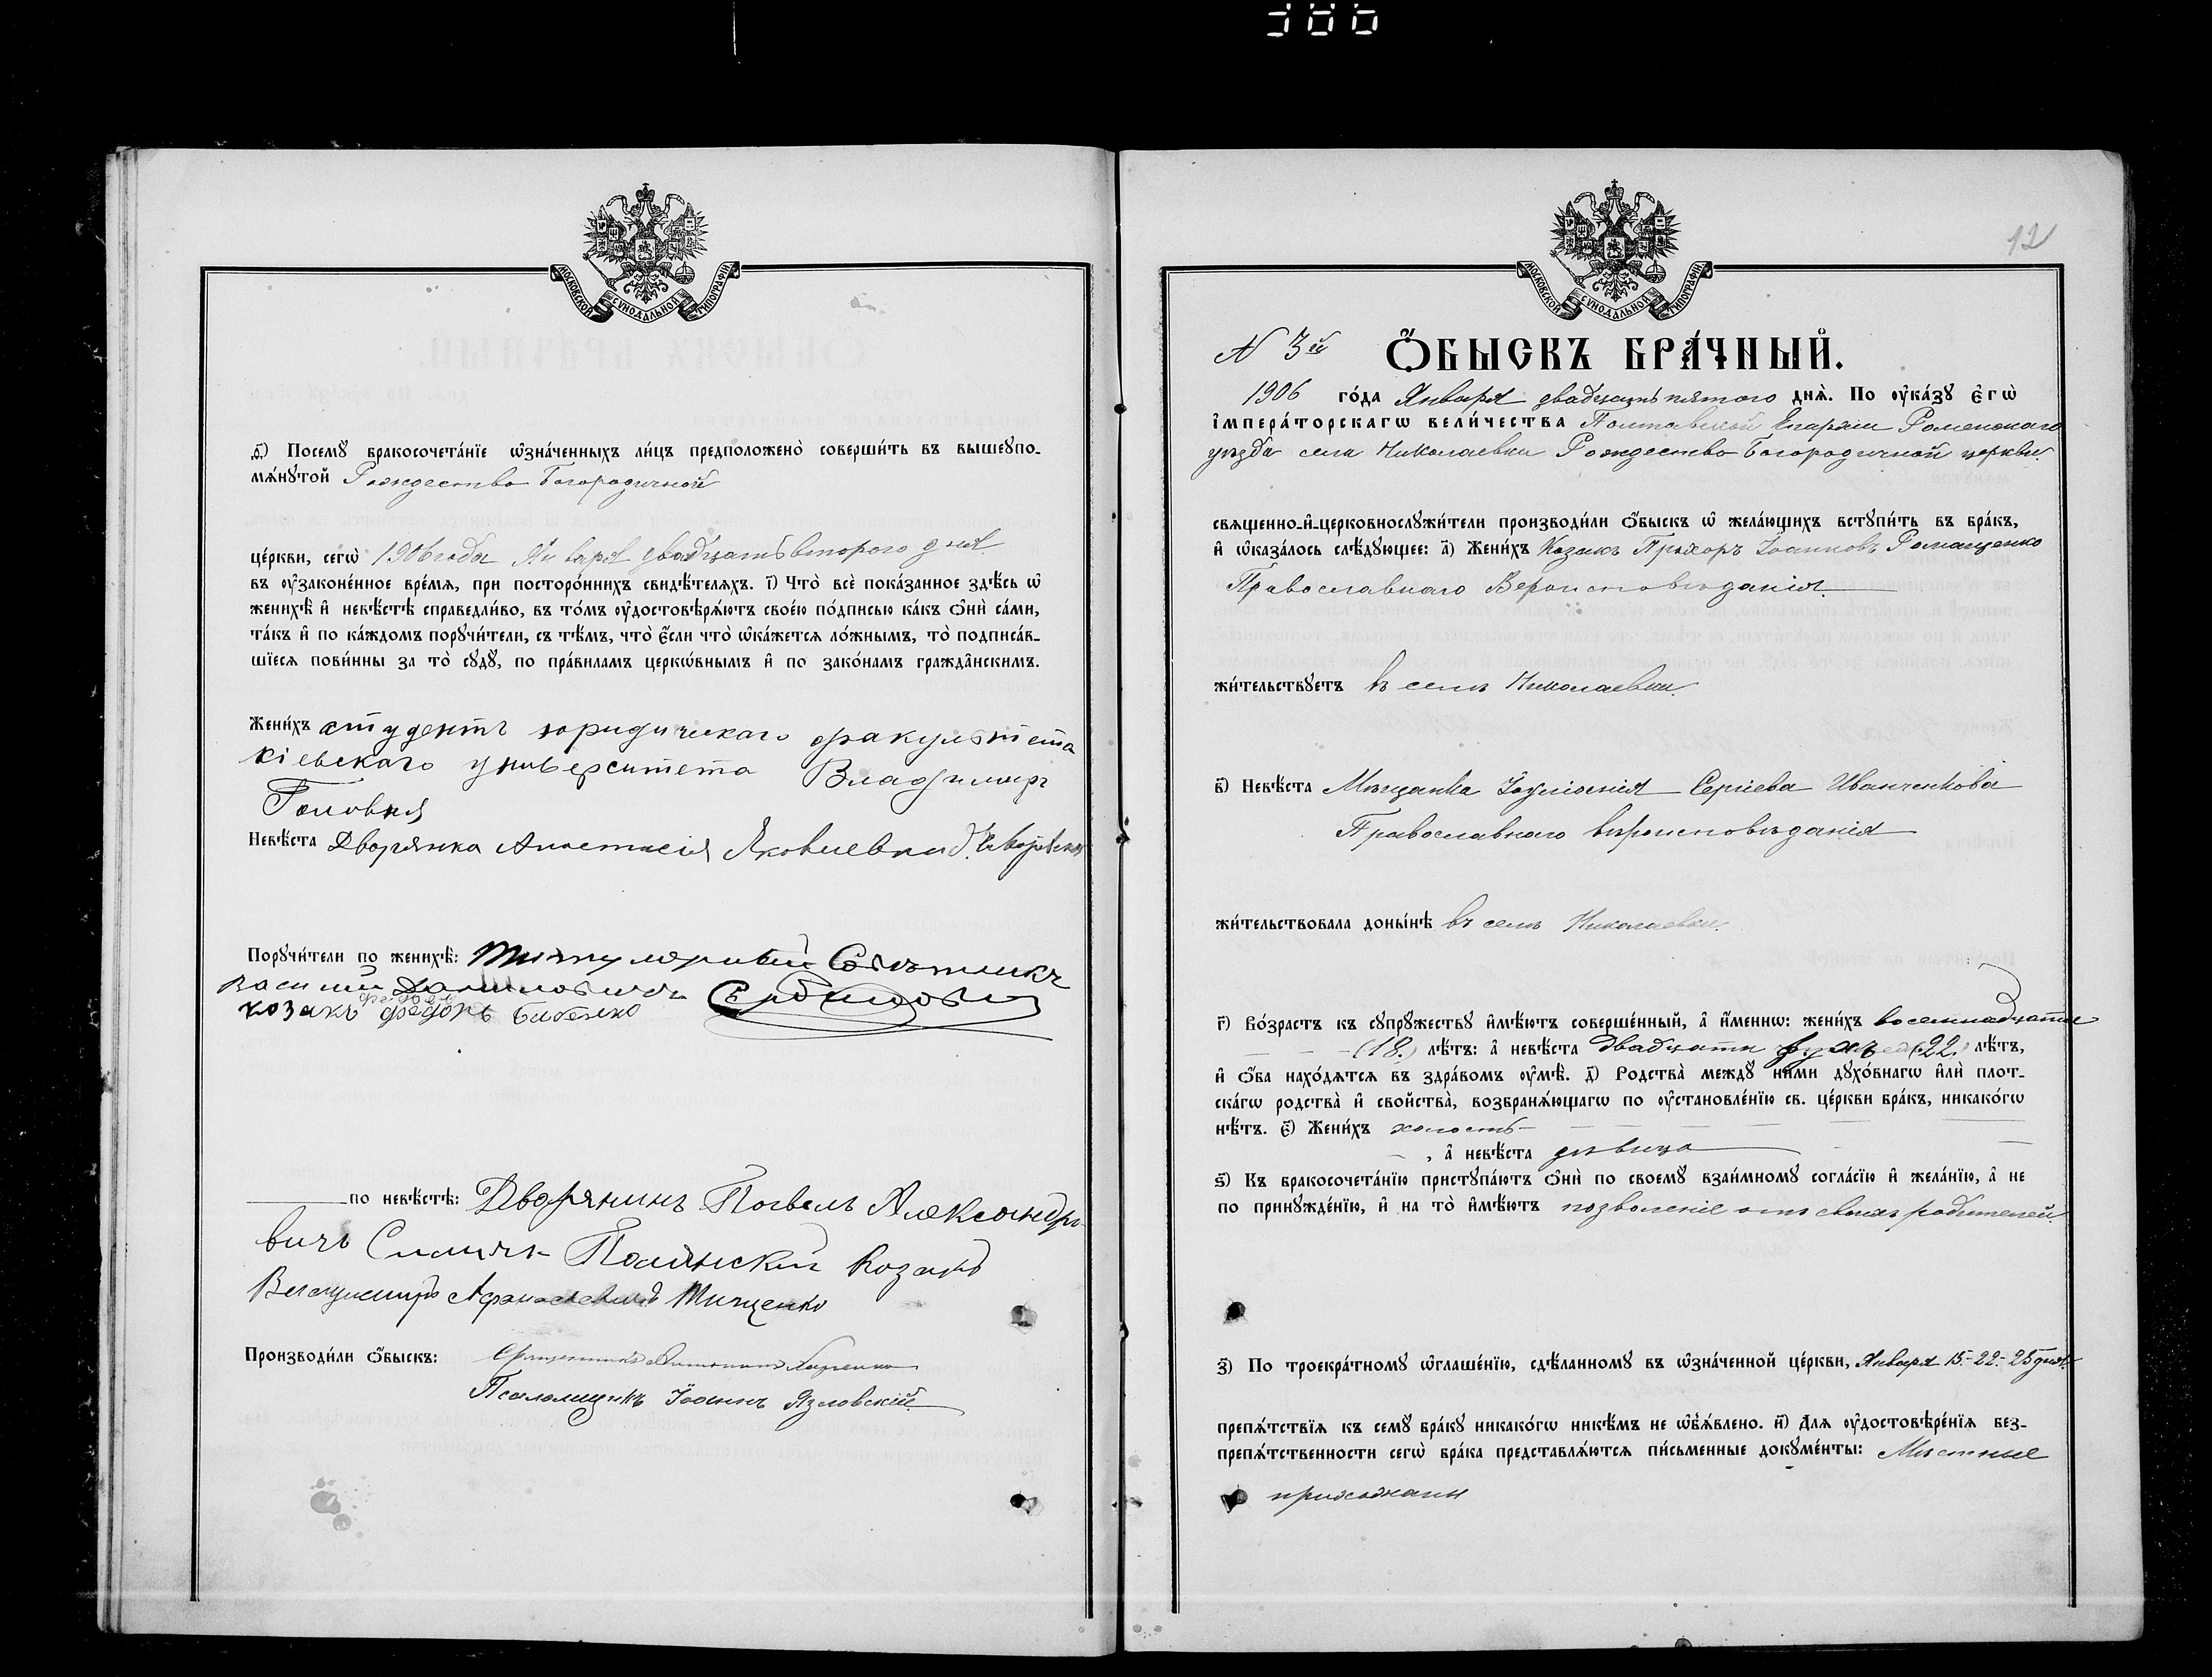 МОСКОВСКОЙ СѴНОДАЛЬНОЙ ТИПОГРАФІИ
ѳ҃) Посемꙋ бракосочета́нїе ѡ҆зна́ченныхъ ли́цъ предположено̀ соверши́ть въ вышеꙋпо-
мѧ́нꙋтой Рождество Богородичной
це́ркви, сегѡ̀ 1906 года Января двадцать второго дня
въ ᲂу҆законе́нное вре́мѧ, при посторо́ннихъ свидѣ́телѧхъ. і҃) Что̀ всѐ пока́занное здѣ́сь ѡ҆
женихѣ̀ и҆ невѣ́стѣ справедли́во, въ то́мъ ᲂу҆достовѣрѧ́ютъ свое́ю по́дписью ка́къ ѻ҆нѝ са́ми,
та́къ и҆ по ка́ждомъ порꙋчи́тели, съ тѣ́мъ, что̀ є҆́сли что̀ ѡ҆ка́жетсѧ ло́жнымъ, то̀ подписа́в-
шїесѧ пови́нны за то̀ сꙋдꙋ̀, по пра́виламъ церкѡ́внымъ и҆ по зако́намъ гражда̑нскимъ.
Жени́хъ студентъ юридическаго факультета
Кіевскаго университета Владимиръ
Головня
Невѣ́ста Дворянка Анастасія Яковлевна
Порꙋчи́тели по женихѣ̀: Титулярный Совѣтникъ
Василий Даниловичъ
козакъ Федоръ
по невѣ́стѣ: Дворянинъ Павелъ Александро-
вичъ Козакъ
Афанасьевичъ Тищенко
Производи́ли ѻ҆́быскъ: Священникъ
Псаломщикъ Іоаннъ Язловскій
12
МОСКОВСКОЙ СѴНОДАЛЬНОЙ ТИПОГРАФІИ
N 3й Ѻ҆́БЫСКЪ БРА́ЧНЫЙ.
1906 го́да Января двадцать пятого днѧ̀. По ᲂу҆ка́зꙋ є҆гѡ̀
і҆мпера́торскагѡ вели́чества Полтавской Епархіи Роменскаго
уѣзда села Николаевки Рождество-Богородичной церкви
свѧщенно-и҆-церковнослꙋжи́тели производи́ли ѻ҆́быскъ ѡ҆ жела́ющихъ встꙋпи́ть въ бра́къ,
и҆ ѡ҆каза́лось слѣ́дꙋющее: а҃) Жени́хъ Козакъ Прохоръ Іоанновъ Романценко
Православнаго Вероисповѣданія
жи́тельствꙋетъ въ селѣ Николаевки
в҃) Невѣ́ста Мѣщанка Іуліанія Сергіева Иванченкова
Православнаго вѣроисповѣданія
жи́тельствовала доны́нѣ въ селѣ Николаевки.
г҃) Во́зрастъ къ сꙋпрꙋ́жествꙋ и҆мѣ́ютъ соверше́нный, а҆ и҆́меннѡ: жени́хъ восемнадцати
(18.) лѣ́тъ: а҆ невѣ́ста двадцати двухъ (22.) лѣ́тъ,
и҆ ѻ҆́ба нахо́дѧтсѧ въ здра́вомъ ᲂу҆мѣ̀. д҃) Родства̀ междꙋ̀ ни́ми дꙋхо́внагѡ и҆лѝ плот-
ска́гѡ родства̀ и҆ свойства̀, возбранѧ́ющагѡ по ᲂу҆становле́нїю св. це́ркви бра́къ, никако́гѡ
нѣ́тъ. є҃) Жени́хъ холостъ
, а҆ невѣ́ста дѣвица
ѕ҃) Къ бракосочета́нїю пристꙋпа́ютъ ѻ҆нѝ по своемꙋ̀ взаи́мномꙋ согла́сїю и҆ жела́нїю, а҆ не
по принꙋжде́нїю, и҆ на то̀ и҆мѣ́ютъ позволеніе отъ своихъ родителей
з҃) По троекра́тномꙋ ѡ҆глаше́нїю, сдѣ́ланномꙋ въ ѡ҆зна́ченной це́ркви, Января 15-22-25 дня.
препѧ́тствїѧ къ семꙋ̀ бра́кꙋ никако́гѡ никѣ́мъ не ѡ҆б̾ѧ́влено. и҃) Длѧ ᲂу҆достовѣре́нїѧ без-
препѧ́тственности сегѡ̀ бра́ка представлѧ́ютсѧ пи́сьменные докꙋме́нты: Мѣстные
прихожани